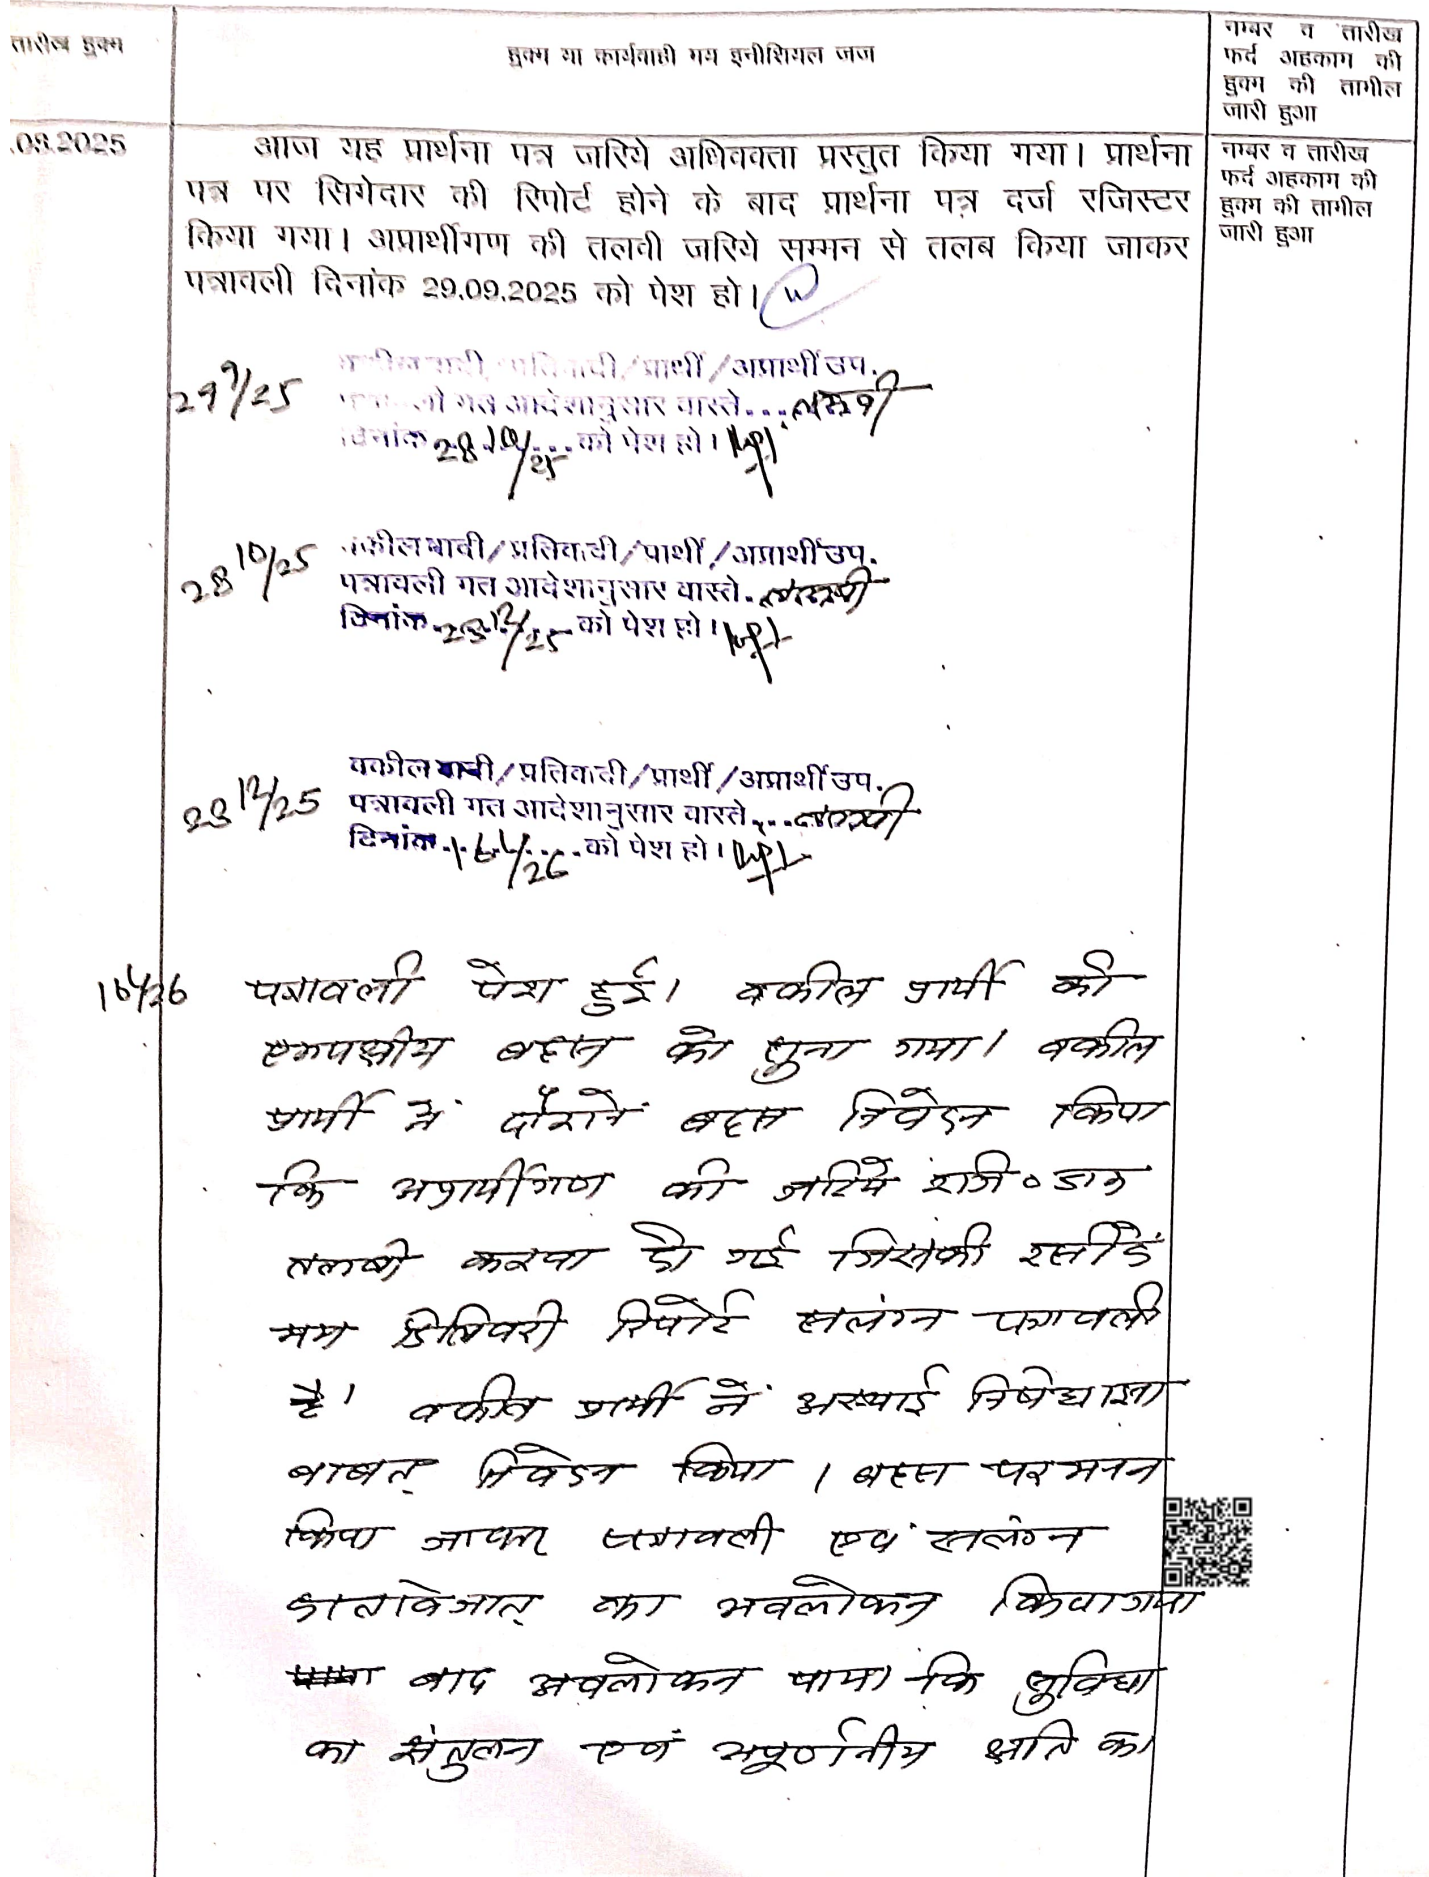 तारीख हुक्म
हुक्म या कार्यवाही मय इनीशियल जज
नम्बर व तारीख
फर्द अहकाम की
हुक्म की तामील
जारी हुआ
.08.2025
आज यह प्रार्थना पत्र जरिये अधिवक्ता प्रस्तुत किया गया। प्रार्थना
पत्र पर सिगेदार की रिपोर्ट होने के बाद प्रार्थना पत्र दर्ज रजिस्टर
किया गया। अप्रार्थीगण की तलवी जरिये सम्मन से तलब किया जाकर
पत्रावली दिनांक 29.09.2025 को पेश हो।
नम्बर व तारीख
फर्द अहकाम की
हुक्म की तामील
जारी हुआ
29 9/25
वकील वादी/प्रतिवादी/प्रार्थी/अप्रार्थी उप.
पत्रावली गत आदेशानुसार वास्ते... तलबी
दिनांक 28 10/25 को पेश हो।
28 10/25
वकील वादी/प्रतिवादी/प्रार्थी/अप्रार्थी उप.
पत्रावली गत आदेशानुसार वास्ते. तलबी
दिनांक 23 12/25 को पेश हो।
23 12/25
वकील वादी/प्रतिवादी/प्रार्थी/अप्रार्थी उप.
पत्रावली गत आदेशानुसार वास्ते... तलबी
दिनांक 16 1/26 को पेश हो।
16 1/26 पत्रावली पेश हुई। वकील प्रार्थी की
एकपक्षीय बहस को सुना गया। वकील
प्रार्थी नें दौरानें बहस निवेदन किया
कि अप्रार्थीगण की जरिये रजि॰ डाक
तलबी करवा दी गई जिसकी रसीदें
मय डिलिवरी रिपोर्ट सलंग्न पत्रावली
है। वकील प्रार्थी नें अस्थाई निषेधाज्ञा
बाबत् निवेदन किया। बहस पर मनन
किया जाकर पत्रावली एवं सलंग्न
दस्तावेजात् का अवलोकन किया गया
बाद अवलोकन पाया कि सुविधा
का संतुलन एवं अपूर्णनीय क्षति का